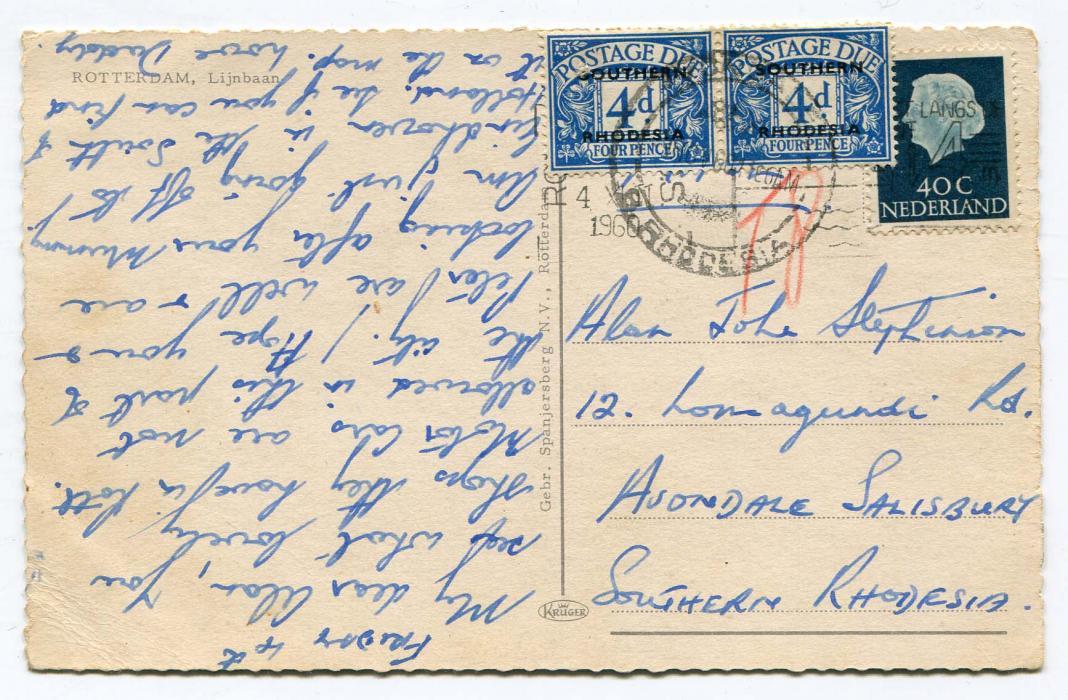 ROTTERDAM, Lijnbaan
POSTAGE DUE
SOUTHERN
4d
RHODESIA
FOUR PENCE
POSTAGE DUE
SOUTHERN
4d
RHODESIA
FOUR PENCE
LANGS
40 C
NEDERLAND
4
1960
RHODESIA
Gebr. Spanjersberg N.V., Rotterdam
KRÜGER
Alan John Stephenson
12. Lomagundi Rd.
AVONDALE SALISBURY
SOUTHERN RHODESIA.
FRIDAY 4th
My dear Alan, You
see what lovely
shops they have in Rott.
Motor Cars are not
allowed in this part of
the city. Hope you &
Peter are well & are
looking after your Mummy.
Am just going off to
Eindhoven in the South of
Holland. See if you can find
it on the map. love Daddy.